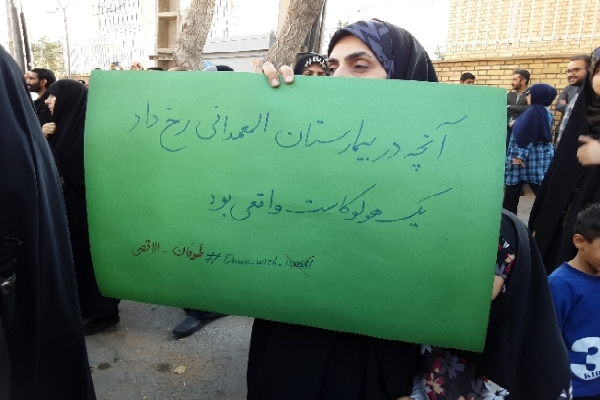 آنچه در بیمارستان المعمدانی رخ داد
یک هولوکاست واقعی بود
#طوفان_الاقصی #Down_with_israel
3